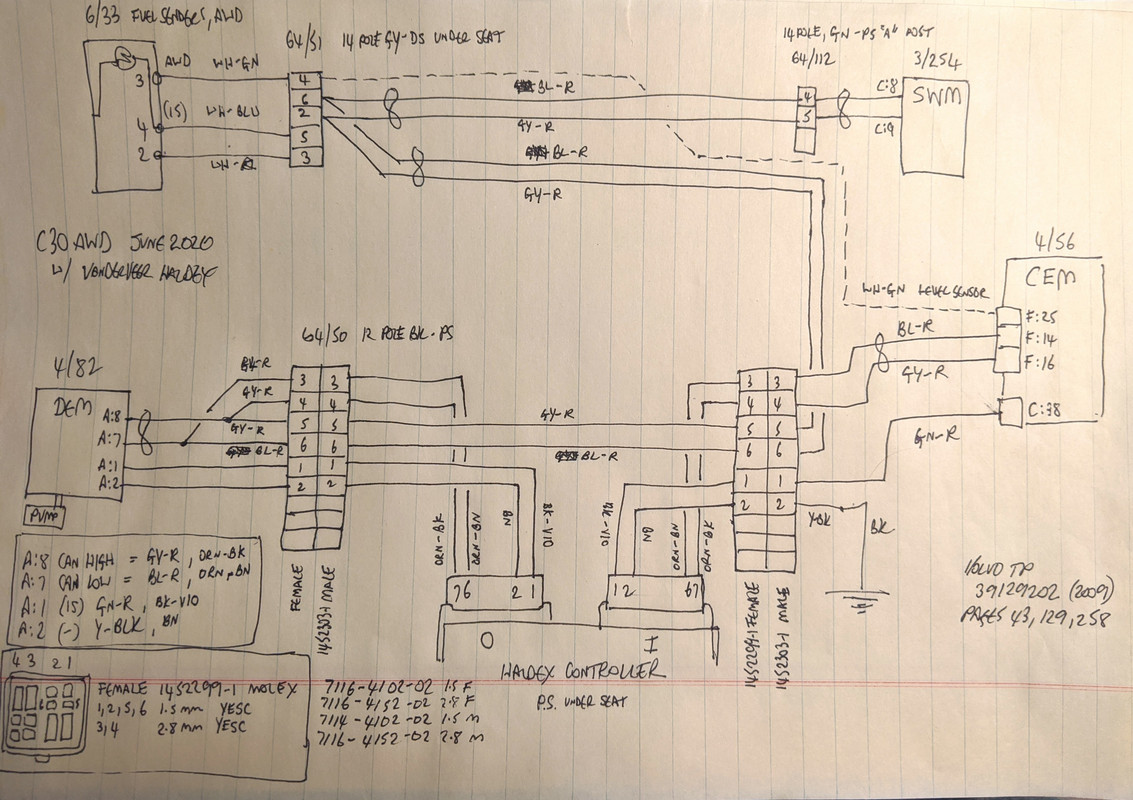 6/33 FUEL SENDERS, AWD
64/51 14 POLE GY-DS UNDER SEAT
14 POLE, GN-PS "A" POST
64/112
3/254
AWD WH-GN
3
4
BL-R
4
C:8
SWM
(15) WH-BLU
6
2
GY-R
5
C:9
4
5
2
WH-BL
3
BL-R
GY-R
C30 AWD JUNE 2020
W/ VANDERVEER HALDEX
4/56
CEM
WH-GN LEVEL SENSOR
F:25
BL-R
F:14
GY-R
F:16
C:38
GN-R
64/50 12 POLE BK-PS
4/82
DEM
GY-R
3 3
4 4
5 5
6 6
1 1
2 2
A:8
A:7
A:1
A:2
GY-R
BL-R
PUMP
GY-R
BL-R
3 3
4 4
5 5
6 6
1 1
2 2
Y-BK
BK
ORN-BK
ORN-BN
BN
BK-VIO
BK-VIO
BN
ORN-BN
ORN-BK
A:8 CAN HIGH = GY-R, ORN-BK
A:7 CAN LOW = BL-R, ORN-BN
A:1 (15) GN-R, BK-VIO
A:2 (-) Y-BLK, BN
FEMALE
1452303-1 MALE
76 2 1
12 67
O
I
HALDEX CONTROLLER
P.S. UNDER SEAT
1452299-1 FEMALE
1452303-1 MALE
VOLVO TP
39129202 (2009)
PAGES 43, 129, 258
4 3 2 1
6 5
FEMALE 1452299-1 MOLEX
1,2,5,6 1.5mm YESC
3,4 2.8mm YESC
7116-4102-02 1.5 F
7116-4152-02 2.8 F
7114-4102-02 1.5 M
7116-4152-02 2.8 M